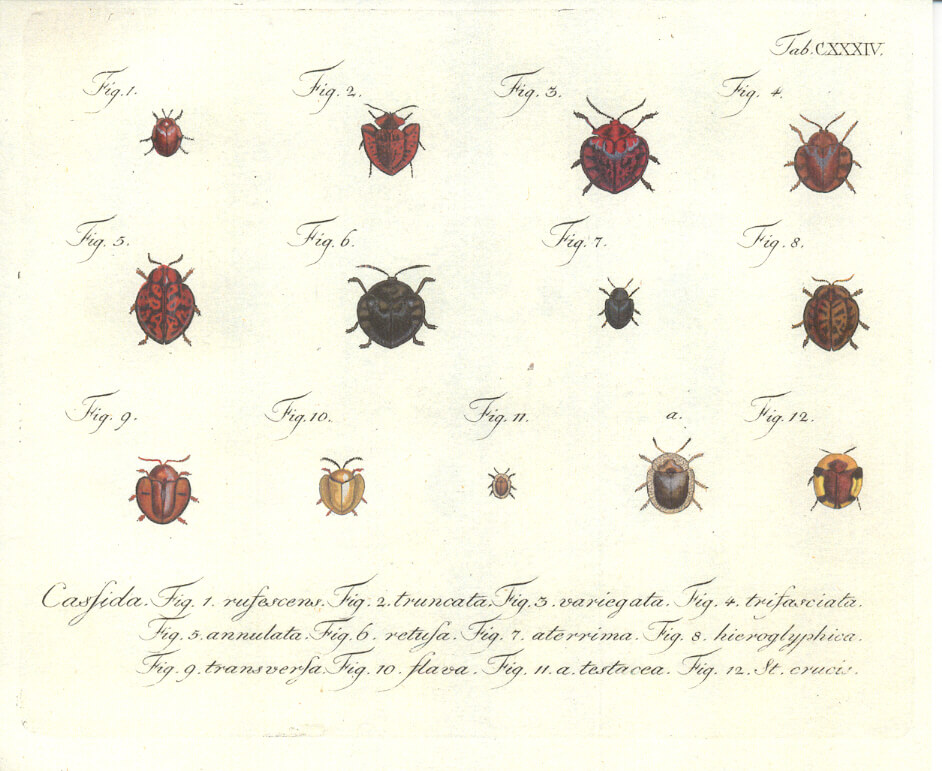 Tab. CXXXIV.
Fig. 1. Fig. 2. Fig. 3. Fig. 4.
Fig. 5. Fig. 6. Fig. 7. Fig. 8.
Fig. 9. Fig. 10. Fig. 11. a. Fig. 12.
Caſsida. Fig. 1. rufescens. Fig. 2. truncata. Fig. 3. variegata. Fig. 4. trifasciata.
Fig. 5. annulata. Fig. 6. retuſa. Fig. 7. aterrima. Fig. 8. hieroglyphica.
Fig. 9. transverſa. Fig. 10. flava. Fig. 11. a. testacea. Fig. 12. St. crucis.